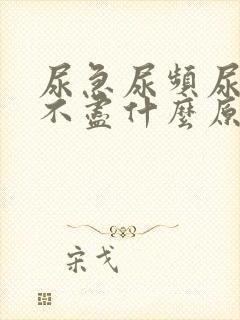 尿急尿頻尿
不盡什麼原
宋戈